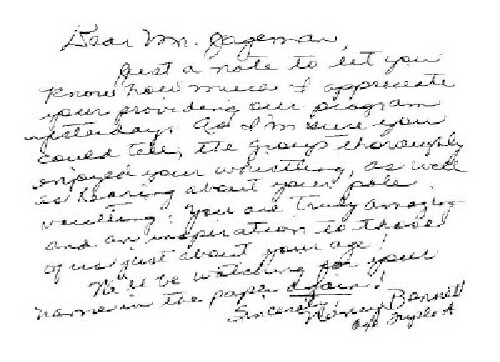 Dear Mr. Hageman,
Just a note to let you
know how much I appreciate
your providing our program
yesterday. As I'm sure you
could tell, the group thoroughly
enjoyed your whistling, as well
as hearing about your pole
vaulting. You are truly amazing
and an inspiration to those
of us just about your age!
We'll be watching for your
name in the paper again!
Sincerely,
Nancy Bennett